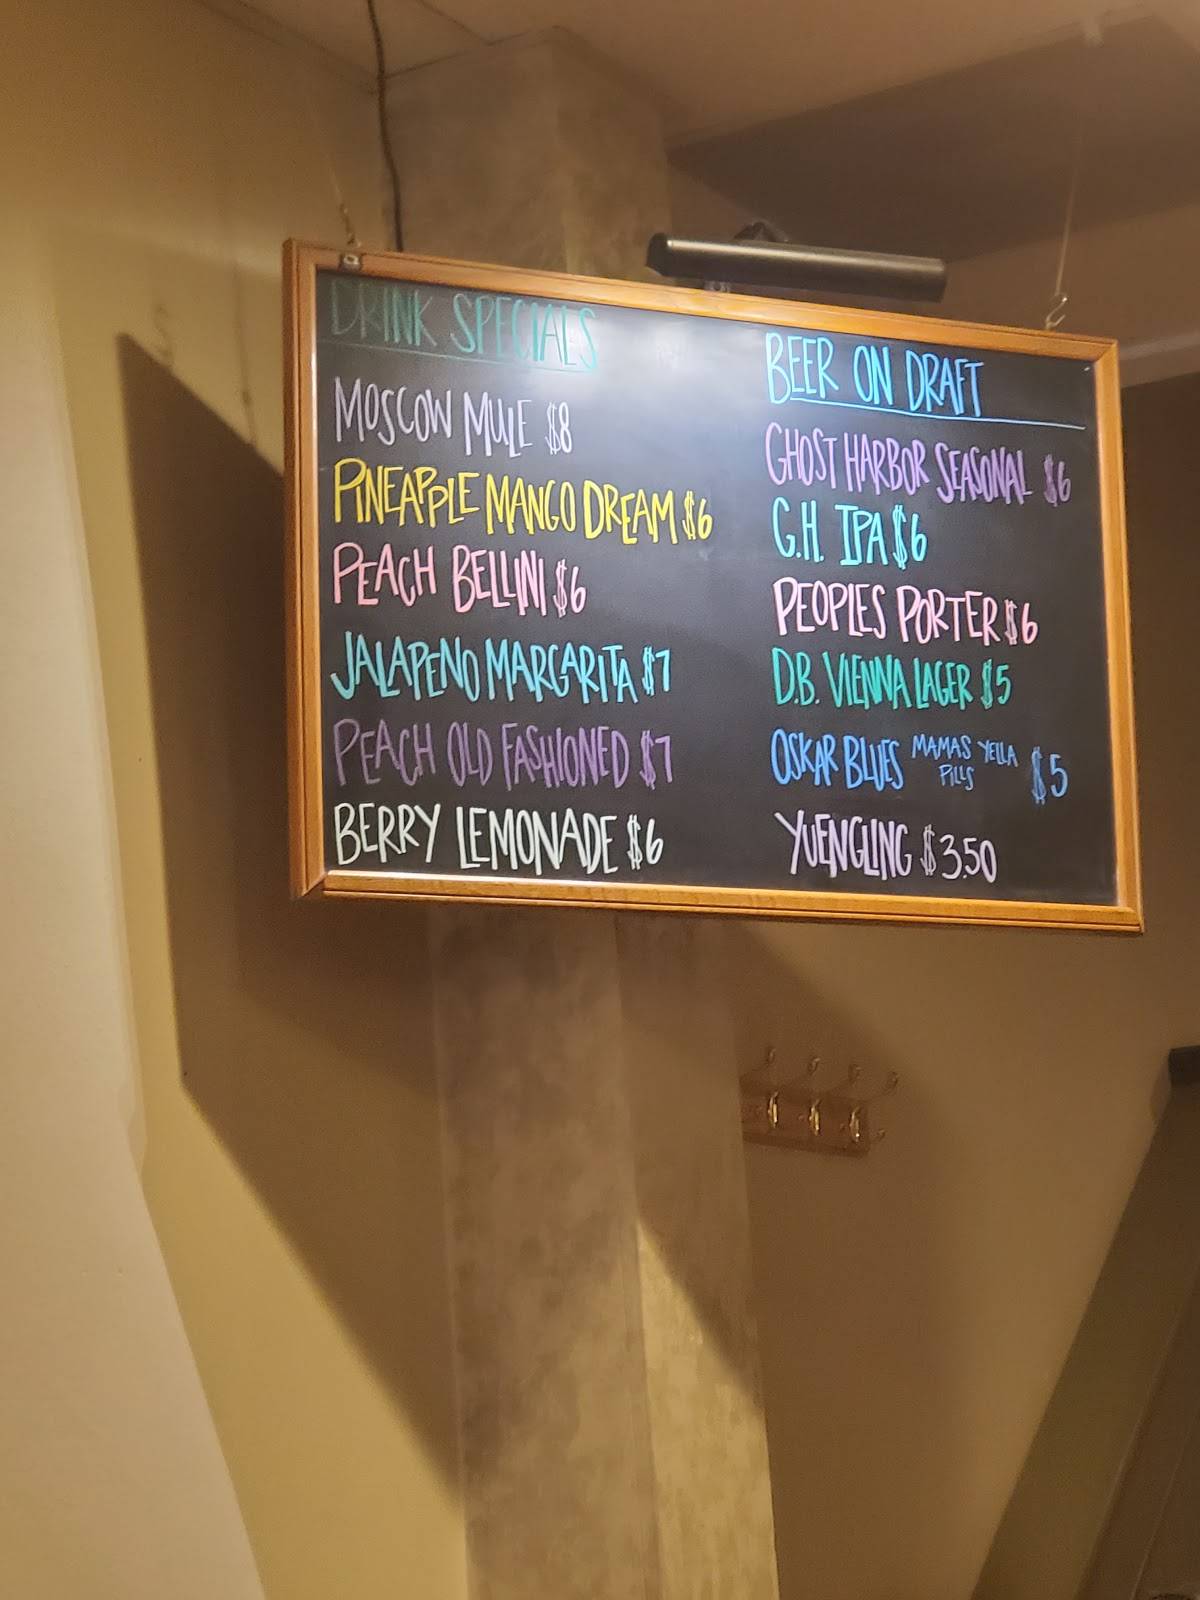 DRINK SPECIALS
MOSCOW MULE $8
PINEAPPLE MANGO DREAM $6
PEACH BELLINI $6
JALAPENO MARGARITA $7
PEACH OLD FASHIONED $7
BERRY LEMONADE $6
BEER ON DRAFT
GHOST HARBOR SEASONAL $6
G.H. IPA $6
PEOPLES PORTER $6
D.B. VIENNA LAGER $5
OSKAR BLUES MAMAS YELLA PILLS $5
YUENGLING $3.50